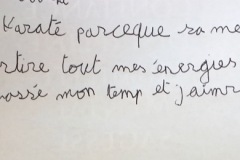 Karaté parceque sa me
rtire tout mes énergies
passé mon temp et j'aimr